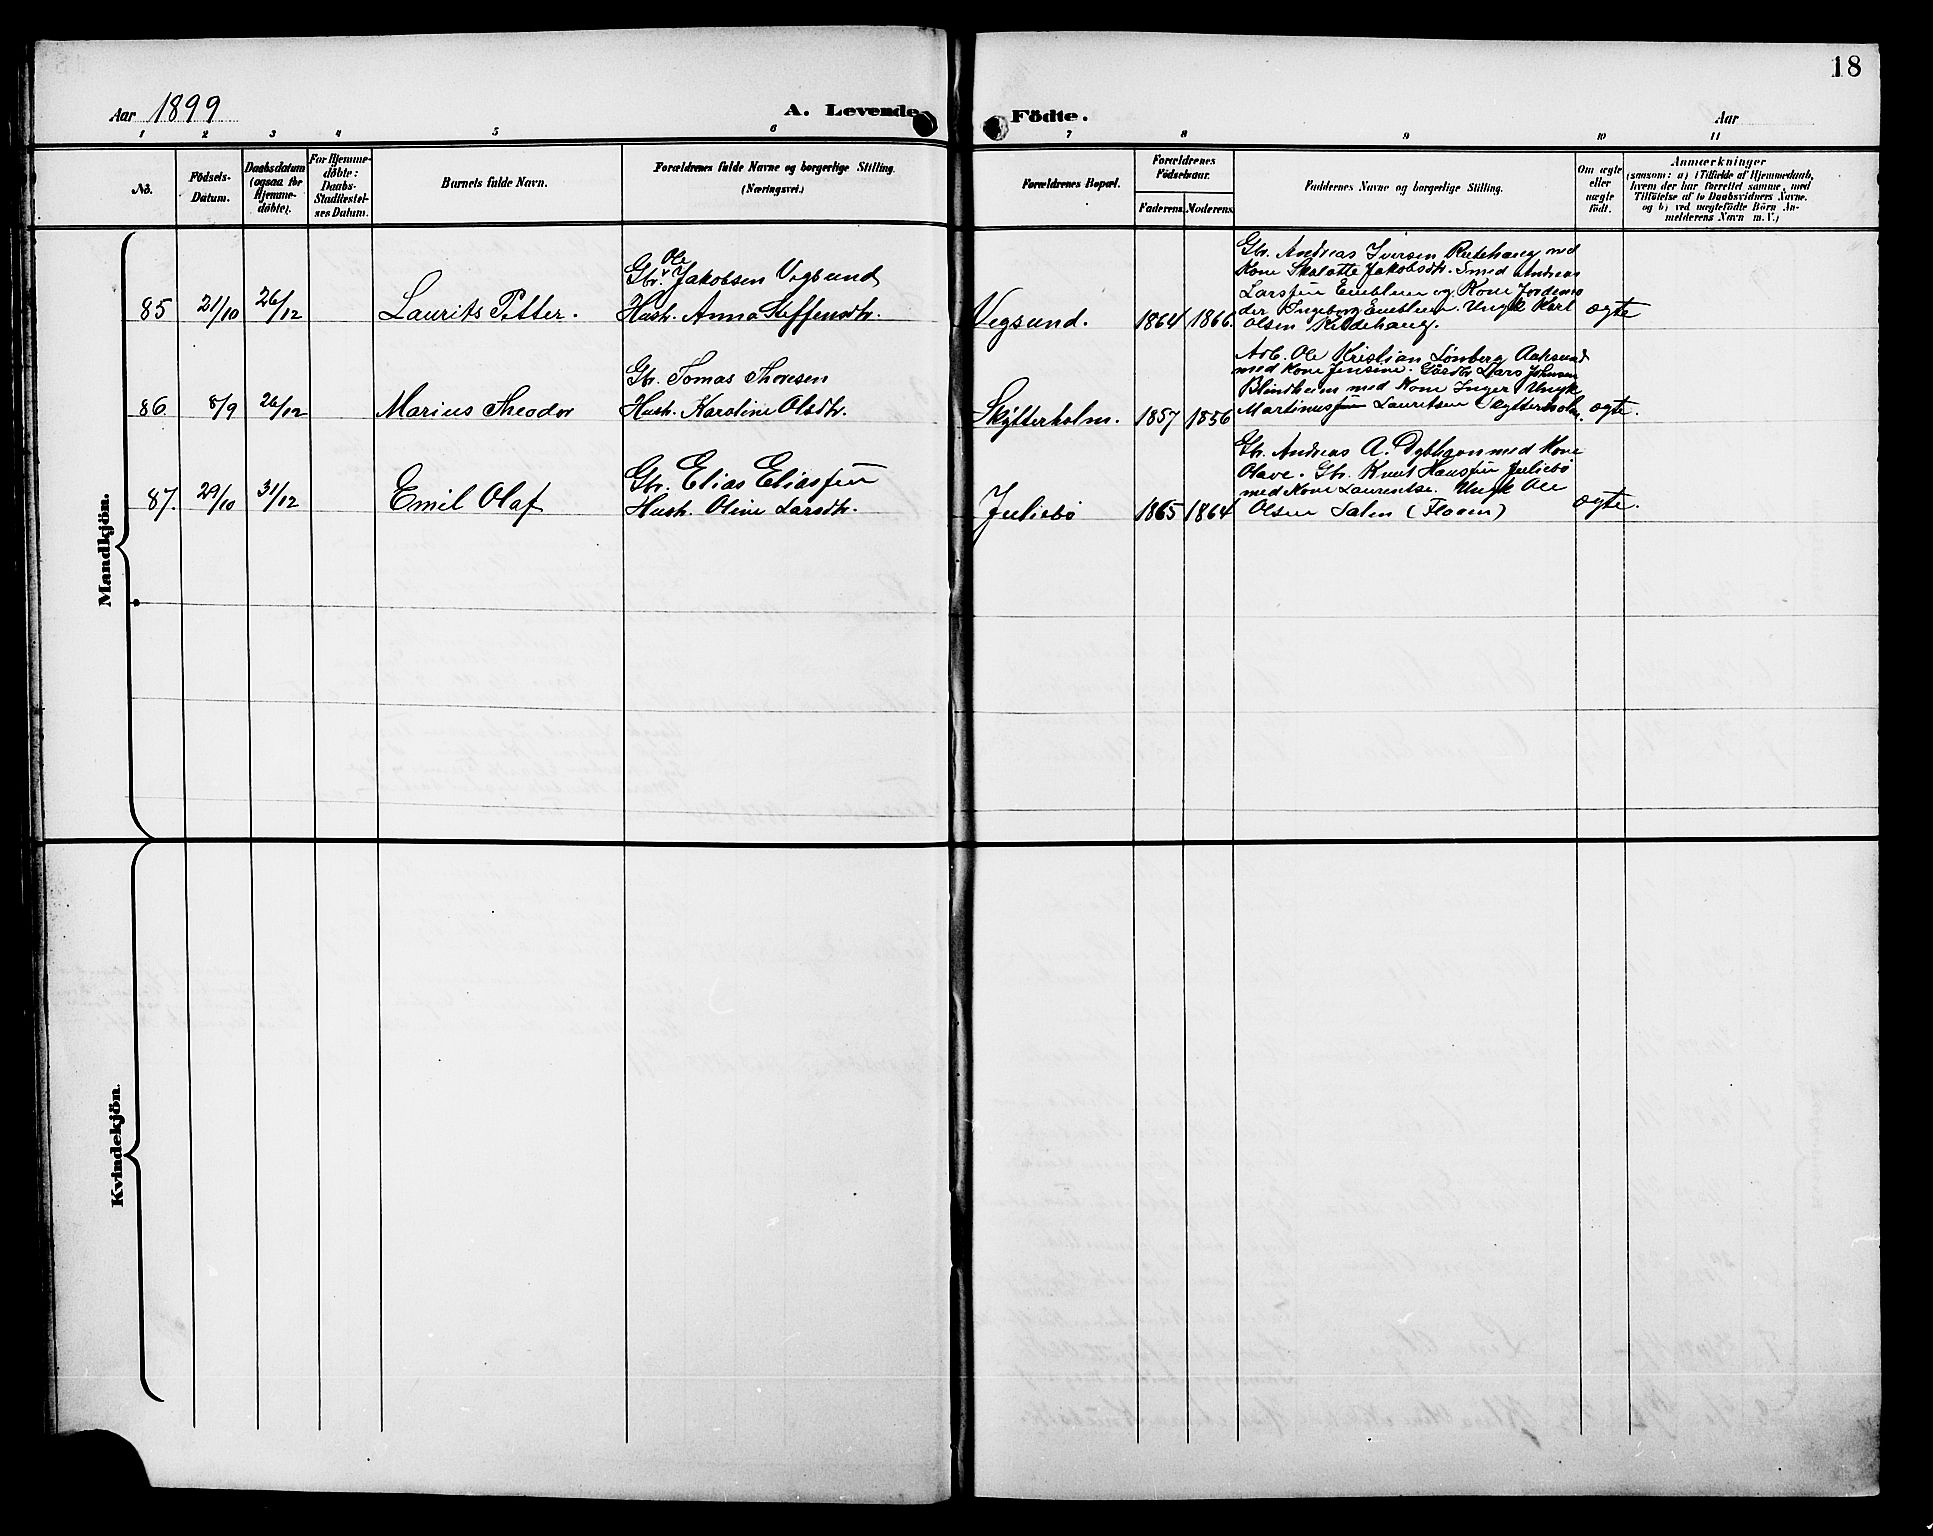 18
Aar 1899
A. Levende Födte.
Aar
1 2 3 4 5 6 7 8 9 10 11
No.
Födsels-
Datum.
Daabsdatum
(ogsaa for
Hjemme-
döbte).
For Hjemme-
döbte:
Daabs-
Stadfæstel-
ses Datum.
Barnets fulde Navn.
Forældrenes fulde Navne og borgerlige Stilling.
(Næringsvei.)
Forældrenes Bopæl.
Forældrenes
Födselsaar.
Faderens. Moderens.
Faddernes Navne og borgerlige Stilling.
Om ægte
eller
uægte
födt.
Anmærkninger
(saasom: a) i Tilfælde af Hjemmedaab,
hvem der har forrettet samme, med
Tilföielse af to Daabsvidners Navne.
og b) ved uægtefödte Börn An-
melderens Navn m. V.)
Mandkjön.
85 21/10 26/12 Laurits Petter.
Gbr. Ole Jakobsen Vegsund
Hust. Anna Steffensdtr.
Vegsund. 1864 1866.
Gbr. Andreas Iversen Rødehaug med
Kone Skalotte Jakobsdtr. Smed Andreas
Larssen Emblem og Kone Jordemo
der Ingeborg Emblem. Ungk Karl
Olsen Reddehaug.
ægte
86 8/9 26/12 Marius Theodor
Gbr. Tomas Thoresen
Hust. Karoline Olsdtr.
Skytterholm. 1857 1856
Arb. Ole Kristian Lønberg Aahsund
med Kone Jensine. Gårdbr Lars Johnsen
Blindheim med Kone Inger Ungk
Martinus Lauritsen Skytterholm.
ægte.
87. 29/10 31/12 Emil Olaf
Gbr. Elias Eliassen
Hust. Oline Larsdtr.
Juliebø 1865 1864
Gbr. Andreas A. Dybhavn med Kone
Olave. Gbr. Knut Hanssen Juliebø
med Kone Laurentse. Ungk Ole
Olsen Salen (Floven)
ægte.
Kvindekjön.